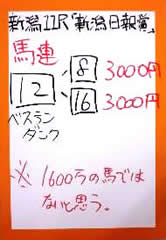 新潟11R「新潟日報賞」
馬連
12 8 3000円
16 3000円
ベストラン
ダンク
※1600万の馬では
ないと思う。